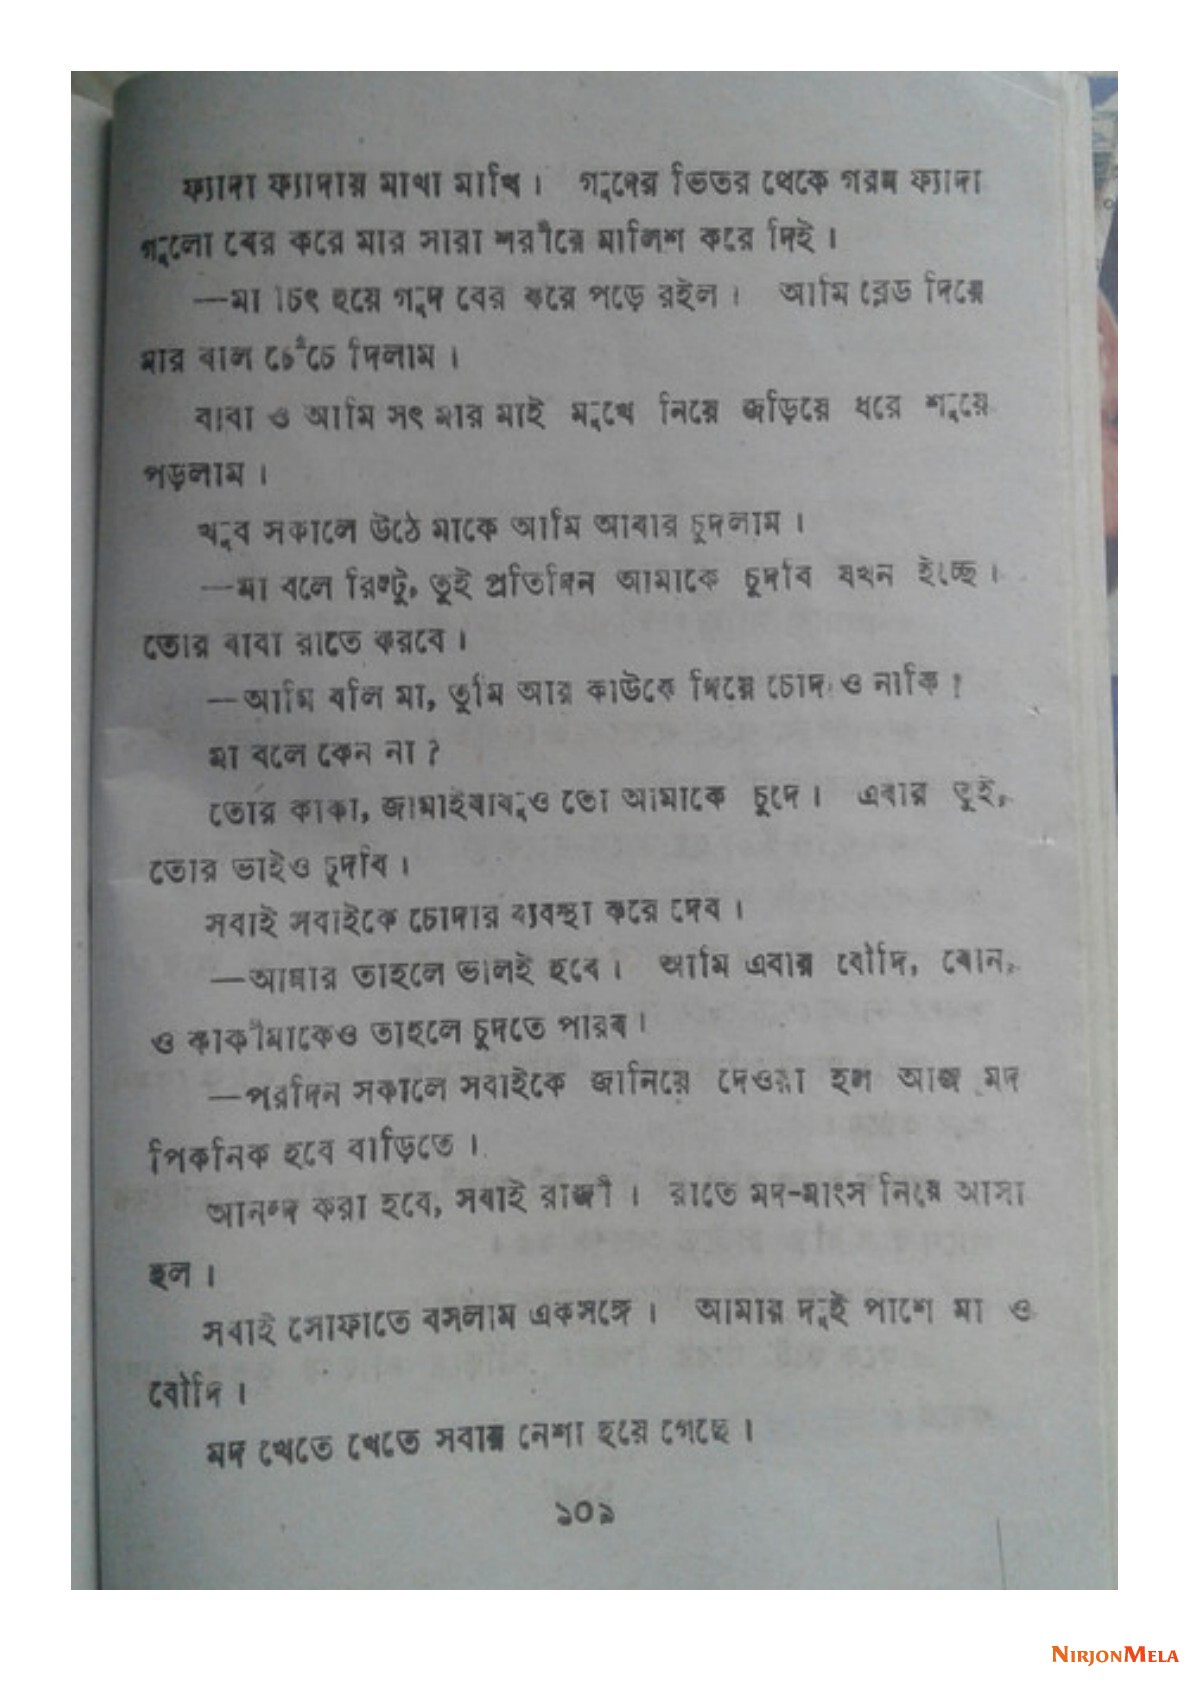 ফ্যাদা ফ্যাদায় মাখা মাখি। গুদের ভিতর থেকে গরম ফ্যাদা
গুলো বের করে মার সারা শরীরে মালিশ করে দিই।
—মা চিৎ হয়ে গুদ বের করে পড়ে রইল। আমি ব্লেড দিয়ে
মার বাল চেঁচে দিলাম।
বাবা ও আমি সৎ মার মাই মুখে নিয়ে জড়িয়ে ধরে শুয়ে
পড়লাম।
খুব সকালে উঠে মাকে আমি আবার চুদলাম।
—মা বলে রিন্টু, তুই প্রতিদিন আমাকে চুদবি যখন ইচ্ছে।
তোর বাবা রাতে করবে।
—আমি বলি মা, তুমি আর কাউকে দিয়ে চোদ ও নাকি?
মা বলে কেন না?
তোর কাকা, জামাইবাবুও তো আমাকে চুদে। এবার তুই,
তোর ভাইও চুদবি।
সবাই সবাইকে চোদার ব্যবস্থা করে দেব।
—আমার তাহলে ভালই হবে। আমি এবার বৌদি, বোন,
ও কাকীমাকেও তাহলে চুদতে পারব।
—পরদিন সকালে সবাইকে জানিয়ে দেওয়া হল আজ মদ
পিকনিক হবে বাড়িতে।
আনন্দ করা হবে, সবাই রাজী। রাতে মদ-মাংস নিয়ে আসা
হল।
সবাই সোফাতে বসলাম একসঙ্গে। আমার দুই পাশে মা ও
বৌদি।
মদ খেতে খেতে সবার নেশা হয়ে গেছে।
১০৯
NIRJONMELA